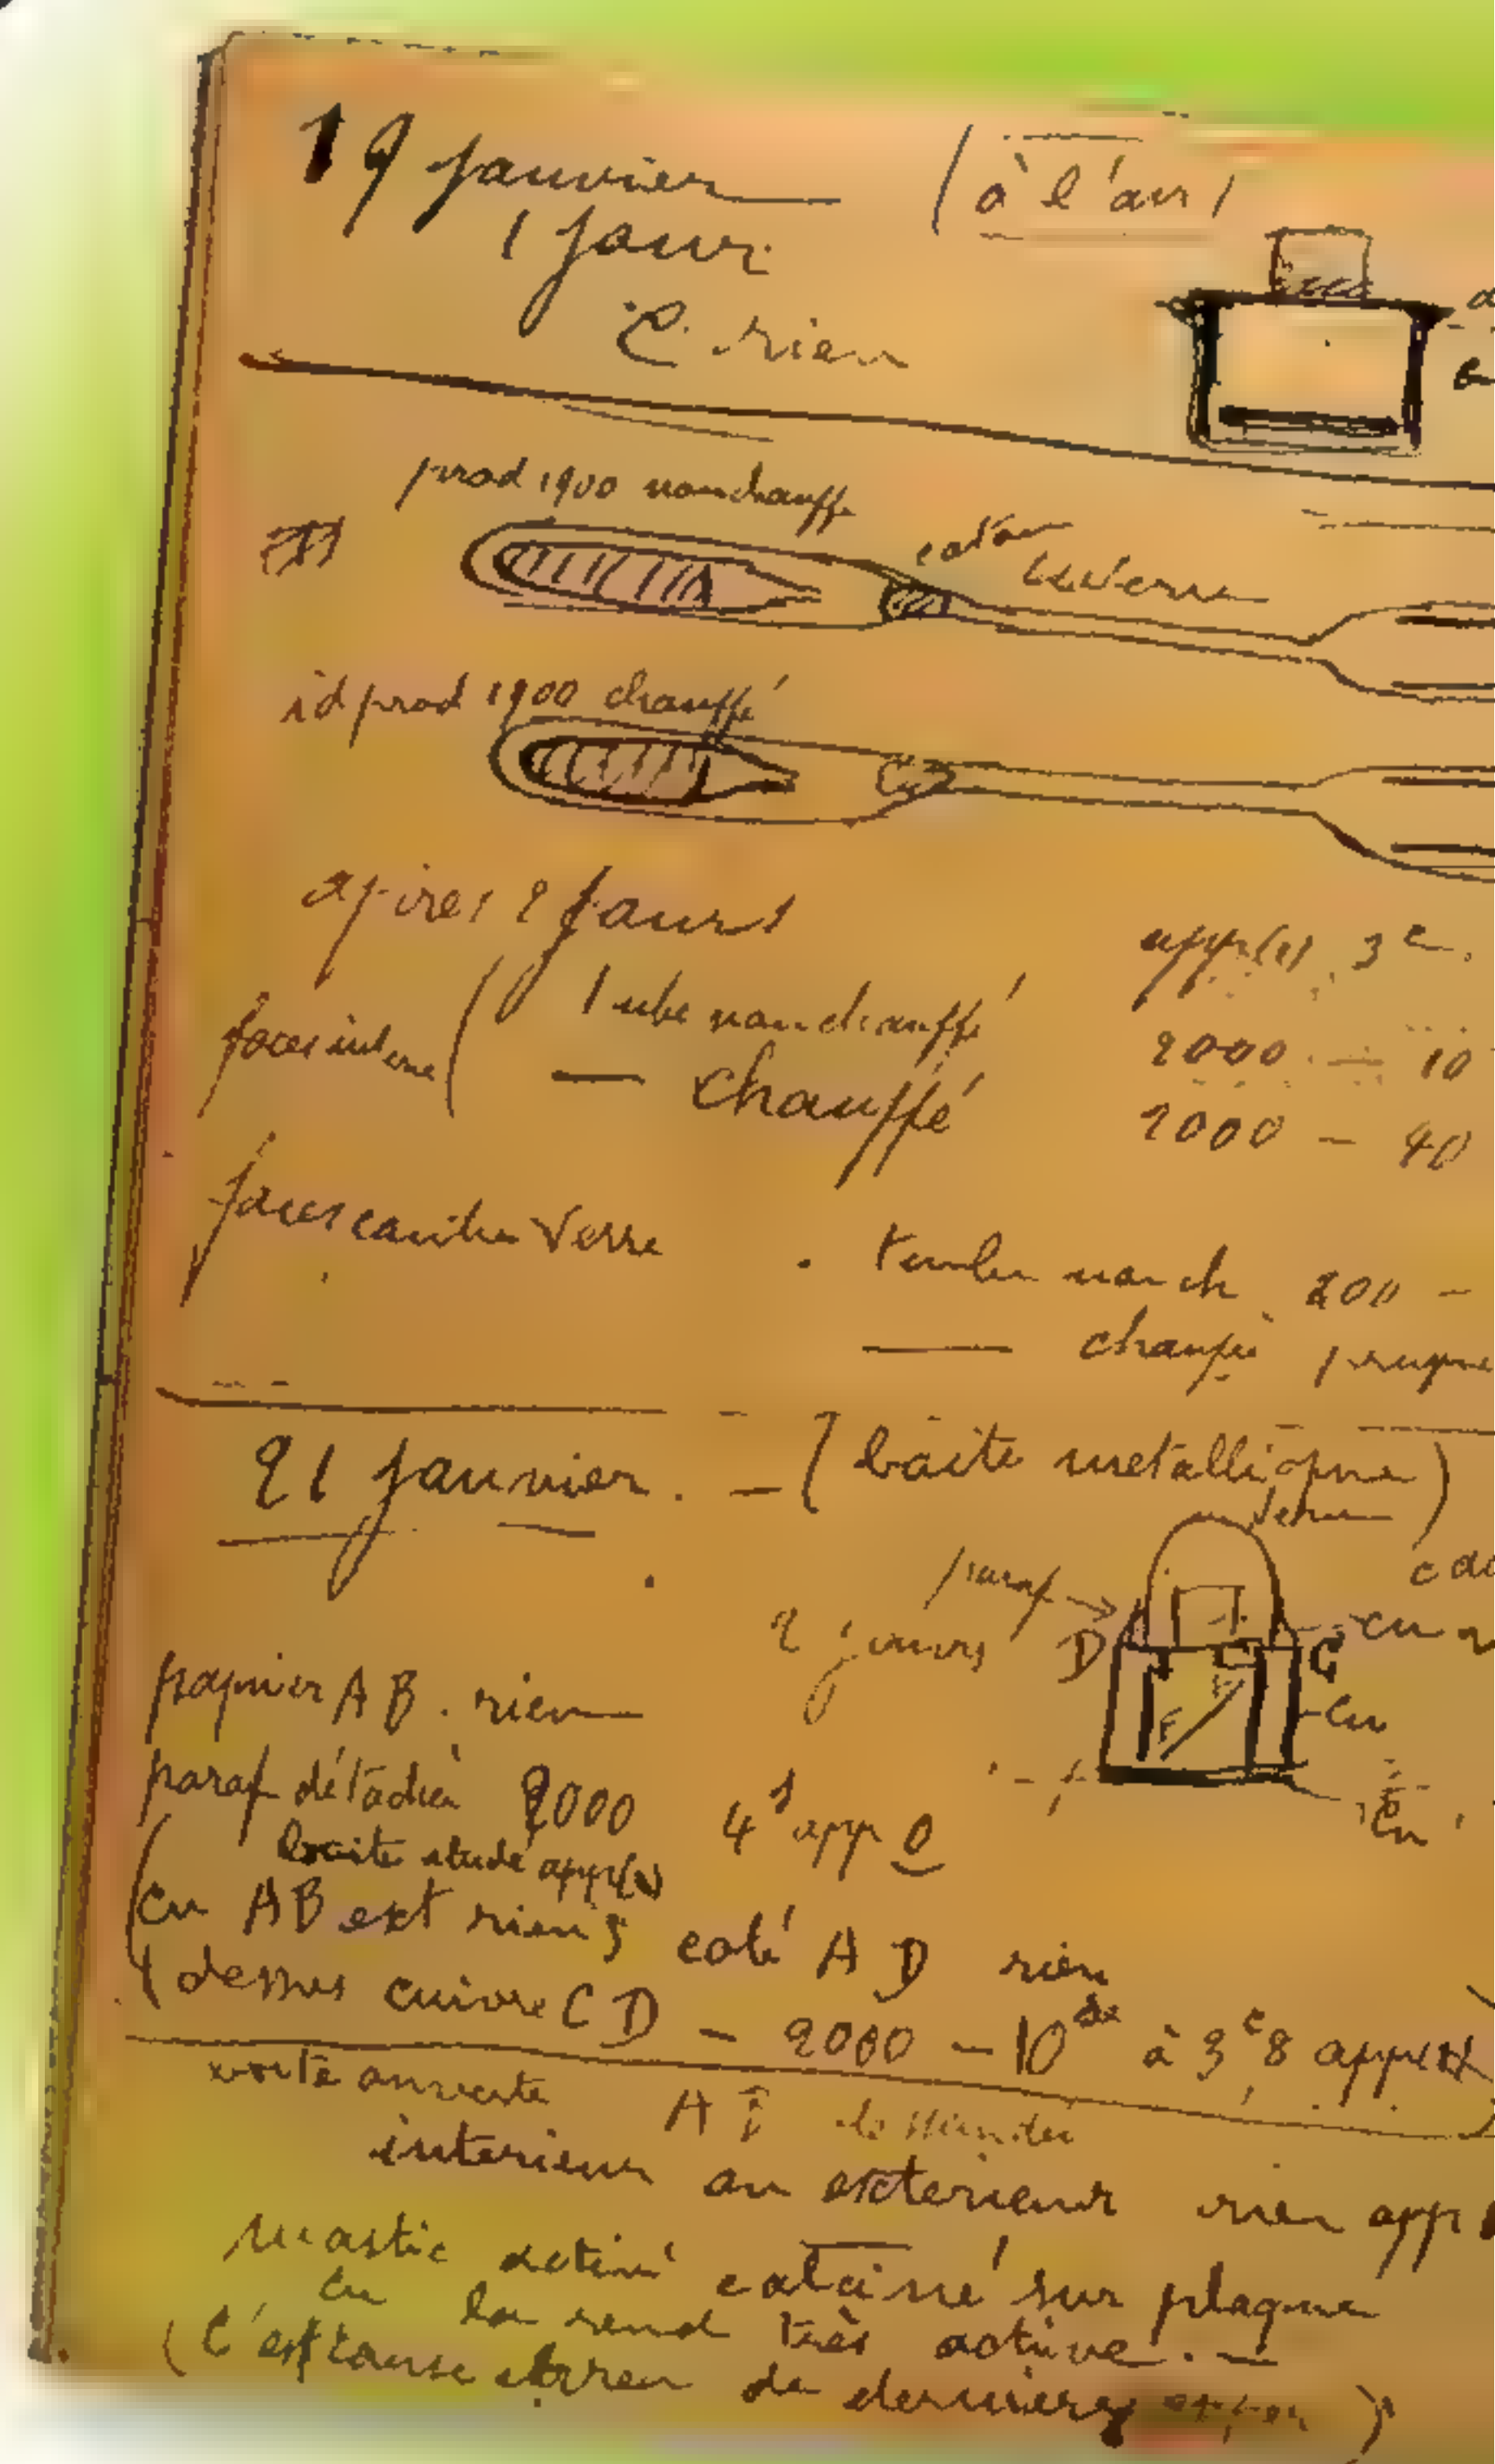 19 janvier — (à l'air)
1 jour
C. rien
prod 1900 non chauffé
coton de verre
id prod 1900 chauffé
après 2 jours
app(1) 3 c.
faces interne ( Tube non chauffé 2000 — 10
— chauffé 2000 – 40
faces contre verre . non ch 200 –
— chauffé presque
21 janvier. – (boite metallique)
verre
paraf → cu
2 jours D C
cu
papier AB. rien
paraf détachée 2000 4s app 0
cu
boite étude app(1)
(cu AB ext rien coté AD rien
(dessus cuivre CD – 2000 – 10 de à 3c8
boite ouverte A
interieur ou exterieur rien app
mastic activé calciné sur plaque
cu la rend très active. —
(C'est cause de derniers )